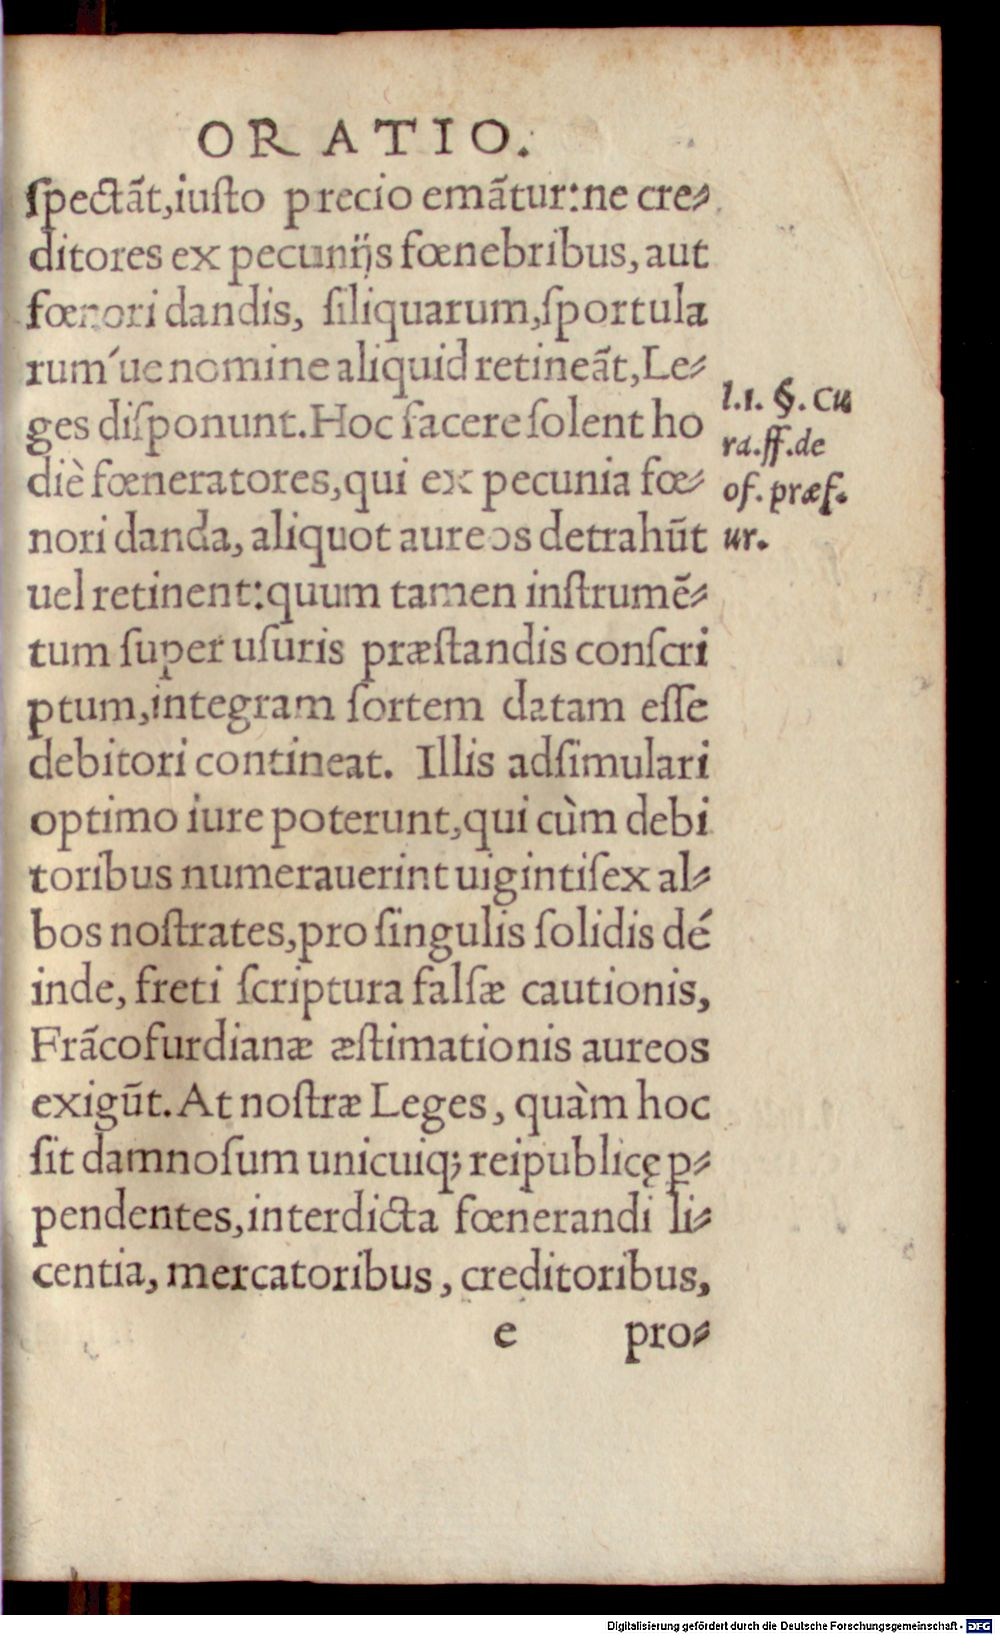 ORATIO.
ſpectãt,iuſto precio emãtur:ne cre⸗
ditores ex pecunijs fœnebribus, aut
fœnori dandis, ſiliquarum,ſportula
rum´ue nomine aliquid retineãt, Le⸗
ges diſponunt. Hoc facere ſolent ho
diè fœneratores,qui ex pecunia fœ⸗
nori danda, aliquot aureos detrahũt
uel retinent:quum tamen inſtrumẽ⸗
tum ſuper uſuris præſtandis conſcri
ptum,integram ſortem datam eſſe
debitori contineat. Illis adſimulari
optimo iure poterunt,qui cùm debi
toribus numerauerint uigintiſex al⸗
bos noſtrates,pro ſingulis ſolidis dé
inde, freti ſcriptura falſæ cautionis,
Frãcofurdianæ æſtimationis aureos
exigũt. At noſtræ Leges, quàm hoc
ſit damnoſum unicuiq; reipublicę ꝑ⸗
pendentes,interdicta fœnerandi li⸗
centia, mercatoribus, creditoribus,
e pro⸗
l.1. §. Cu
ra.ff.de
of. præf.
ur.
Digitalisierung gefördert durch die Deutsche Forschungsgemeinschaft - DFG